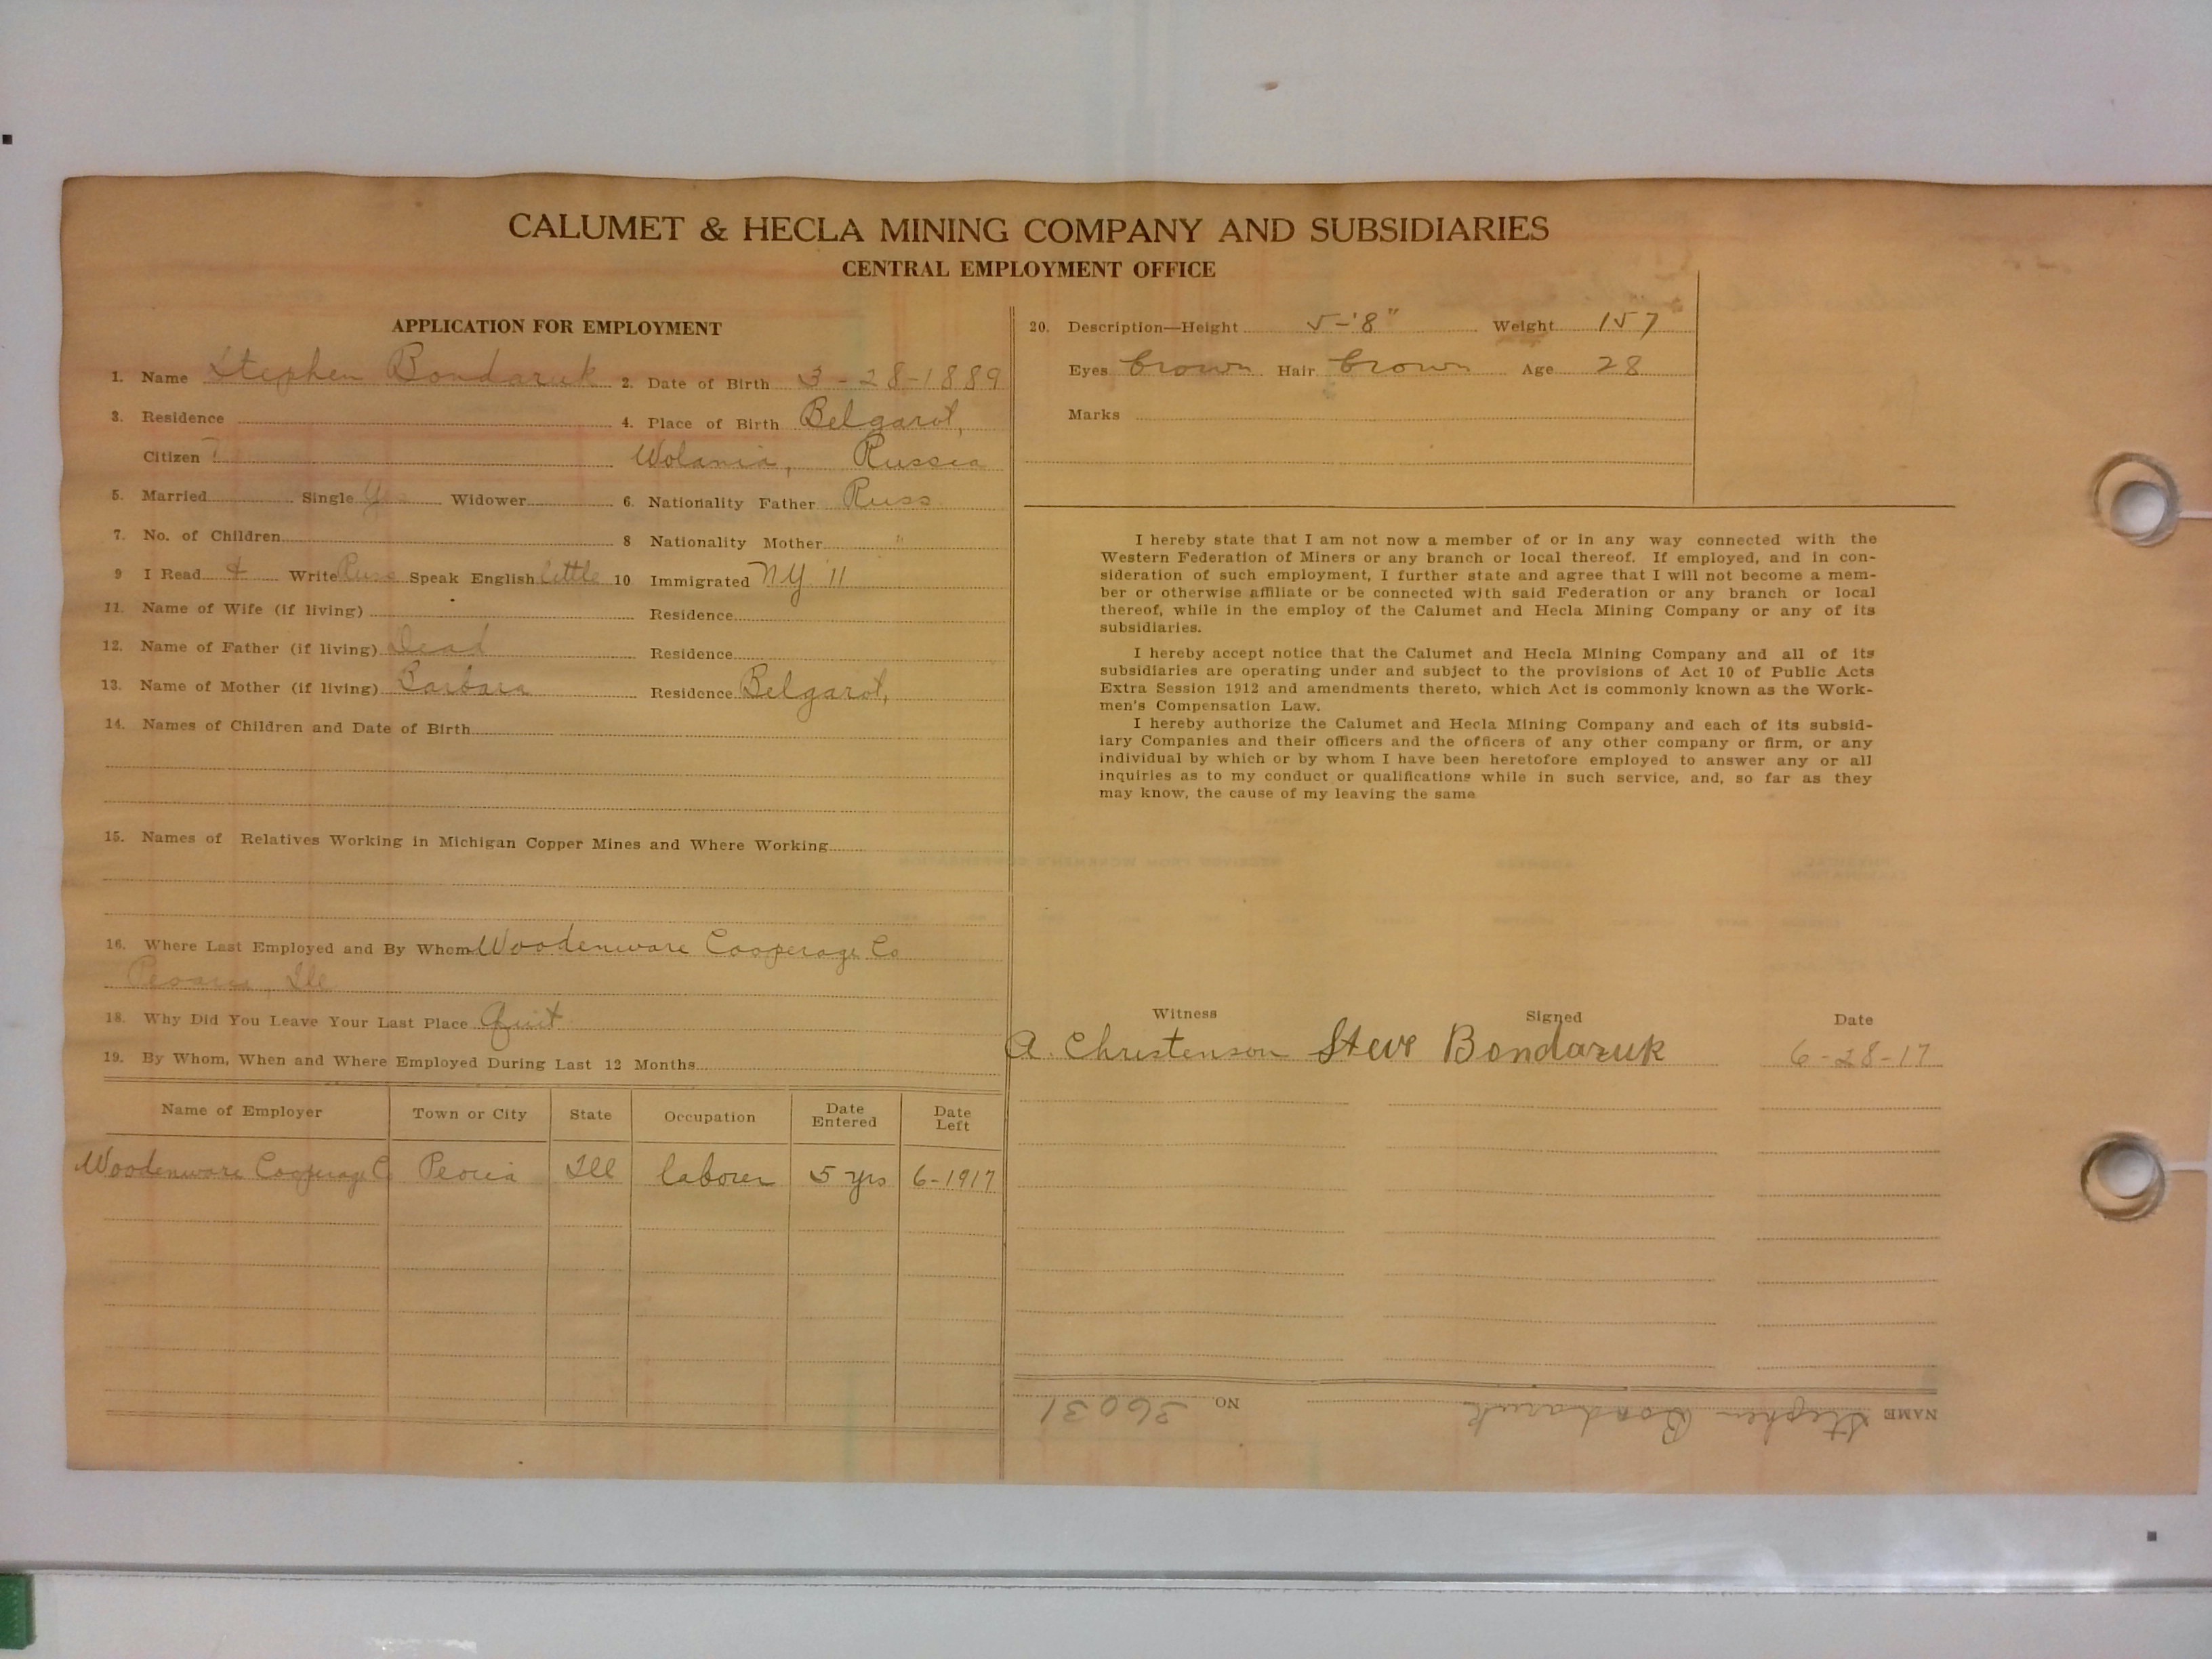 CALUMET & HECLA MINING COMPANY AND SUBSIDIARIES
CENTRAL EMPLOYMENT OFFICE
APPLICATION FOR EMPLOYMENT
1. Name Stephen Bondaruk 2. Date of Birth 3-28-1889
3. Residence 4. Place of Birth Belgarot,
Citizen Wolania, Russia
5. Married Single Widower 6. Nationality Father Russ
7. No. of Children 8 Nationality Mother "
9 I Read & Write Russ Speak English little 10 Immigrated NY '11
11. Name of Wife (if living) Residence
12. Name of Father (if living) Dead Residence
13. Name of Mother (if living) Barbara Residence Belgarot,
14. Names of Children and Date of Birth
15. Names of Relatives Working in Michigan Copper Mines and Where Working
16. Where Last Employed and By Whom Woodenware Cooperage Co
Peoria, Ill
18. Why Did You Leave Your Last Place Quit
19. By Whom, When and Where Employed During Last 12 Months
Name of Employer Town or City State Occupation Date Entered Date Left
Woodenware Cooperage C Peoria Ill laborer 5 yrs 6-1917
20. Description—Height 5-'8" Weight 157
Eyes brown Hair brown Age 28
Marks
I hereby state that I am not now a member of or in any way connected with the
Western Federation of Miners or any branch or local thereof. If employed, and in con-
sideration of such employment, I further state and agree that I will not become a mem-
ber or otherwise affiliate or be connected with said Federation or any branch or local
thereof, while in the employ of the Calumet and Hecla Mining Company or any of its
subsidiaries.
I hereby accept notice that the Calumet and Hecla Mining Company and all of its
subsidiaries are operating under and subject to the provisions of Act 10 of Public Acts
Extra Session 1912 and amendments thereto, which Act is commonly known as the Work-
men's Compensation Law.
I hereby authorize the Calumet and Hecla Mining Company and each of its subsid-
iary Companies and their officers and the officers of any other company or firm, or any
individual by which or by whom I have been heretofore employed to answer any or all
inquiries as to my conduct or qualifications while in such service, and, so far as they
may know, the cause of my leaving the same
Witness Signed Date
A. Christenson Steve Bondazuk 6-28-17
NAME Stephen Bondaruk NO. 36031